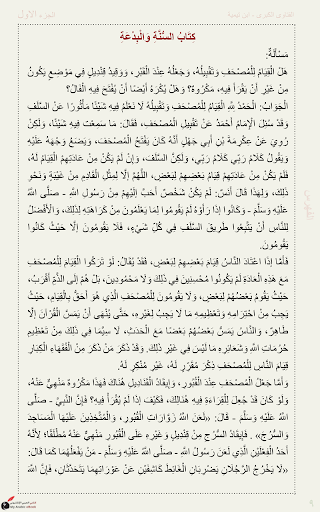 الفتاوى الكبرى - ابن تيمية
الجزء الأول
كِتَابُ السُّنَّةِ وَالْبِدْعَةِ
مَسْأَلَةٌ:
هَلْ الْقِيَامُ لِلْمُصْحَفِ وَتَقْبِيلُهُ، وَجَعْلُهُ عِنْدَ الْقَبْرِ، وَوَقِيدُ قِنْدِيلٍ فِي مَوْضِعٍ يَكُونُ
مِنْ غَيْرِ أَنْ يُقْرَأَ فِيهِ، مَكْرُوهٌ؟ وَهَلْ يُكْرَهُ أَيْضًا أَنْ يُفْتَحَ فِيهِ الْفَالُ؟
الْجَوَابُ: الْحَمْدُ لِلَّهِ الْقِيَامُ لِلْمُصْحَفِ وَتَقْبِيلُهُ لَا نَعْلَمُ فِيهِ شَيْئًا مَأْثُورًا عَنْ السَّلَفِ
وَقَدْ سُئِلَ الْإِمَامُ أَحْمَدُ عَنْ تَقْبِيلِ الْمُصْحَفِ، فَقَالَ: مَا سَمِعْت فِيهِ شَيْئًا، وَلَكِنْ
رُوِيَ عَنْ عِكْرِمَةَ بْنِ أَبِي جَهْلٍ أَنَّهُ كَانَ يَفْتَحُ الْمُصْحَفَ، وَيَضَعُ وَجْهَهُ عَلَيْهِ
وَيَقُولُ كَلَامُ رَبِّي كَلَامُ رَبِّي، وَلَكِنَّ السَّلَفَ، وَإِنْ لَمْ يَكُنْ مِنْ عَادَتِهِمْ الْقِيَامُ لَهُ،
فَلَمْ يَكُنْ مِنْ عَادَتِهِمْ قِيَامُ بَعْضِهِمْ لِبَعْضٍ، اللَّهُمَّ إلَّا لِمِثْلِ الْقَادِمِ مِنْ غَيْبَةٍ وَنَحْوِ
ذَلِكَ، وَلِهَذَا قَالَ أَنَسٌ: لَمْ يَكُنْ شَخْصٌ أَحَبَّ إلَيْهِمْ مِنْ رَسُولِ اللَّهِ - صَلَّى اللَّهُ
عَلَيْهِ وَسَلَّمَ - وَكَانُوا إذَا رَأَوْهُ لَمْ يَقُومُوا لِمَا يَعْلَمُونَ مِنْ كَرَاهَتِهِ لِذَلِكَ، وَالْأَفْضَلُ
لِلنَّاسِ أَنْ يَتَّبِعُوا طَرِيقَ السَّلَفِ فِي كُلِّ شَيْءٍ، فَلَا يَقُومُونَ إلَّا حَيْثُ كَانُوا
يَقُومُونَ.
فَأَمَّا إذَا اعْتَادَ النَّاسُ قِيَامَ بَعْضِهِمْ لِبَعْضٍ، فَقَدْ يُقَالُ: لَوْ تَرَكُوا الْقِيَامَ لِلْمُصْحَفِ
مَعَ هَذِهِ الْعَادَةِ لَمْ يَكُونُوا مُحْسِنِينَ فِي ذَلِكَ وَلَا مَحْمُودِينَ، بَلْ هُمْ إلَى الذَّمِّ أَقْرَبُ،
حَيْثُ يَقُومُ بَعْضُهُمْ لِبَعْضٍ، وَلَا يَقُومُونَ لِلْمُصْحَفِ الَّذِي هُوَ أَحَقُّ بِالْقِيَامِ، حَيْثُ
يَجِبُ مِنْ احْتِرَامِهِ وَتَعْظِيمِهِ مَا لَا يَجِبُ لِغَيْرِهِ، حَتَّى يُنْهَى أَنْ يَمَسَّ الْقُرْآنَ إلَّا
طَاهِرٌ، وَالنَّاسُ يَمَسُّ بَعْضُهُمْ بَعْضًا مَعَ الْحَدَثِ، لَا سِيَّمَا فِي ذَلِكَ مِنْ تَعْظِيمِ
حُرُمَاتِ اللَّهِ وَشَعَائِرِهِ مَا لَيْسَ فِي غَيْرِ ذَلِكَ. وَقَدْ ذَكَرَ مَنْ ذَكَرَ مِنْ الْفُقَهَاءِ الْكِبَارِ
قِيَامَ النَّاسِ لِلْمُصْحَفِ ذِكْرَ مُقَرِّرٍ لَهُ، غَيْرِ مُنْكِرٍ لَهُ.
وَأَمَّا جَعْلُ الْمُصْحَفِ عِنْدَ الْقُبُورِ، وَإِيقَادُ الْقَنَادِيلِ هُنَاكَ فَهَذَا مَكْرُوهٌ مَنْهِيٌّ عَنْهُ،
وَلَوْ كَانَ قَدْ جُعِلَ لِلْقِرَاءَةِ فِيهِ هُنَالِكَ، فَكَيْفَ إذَا لَمْ يُقْرَأْ فِيهِ؟ فَإِنَّ النَّبِيَّ - صَلَّى
اللَّهُ عَلَيْهِ وَسَلَّمَ - قَالَ: «لَعَنَ اللَّهُ زَوَّارَاتِ الْقُبُورِ، وَالْمُتَّخِذِينَ عَلَيْهَا الْمَسَاجِدَ
وَالسُّرُجَ» . فَإِيقَادُ السُّرُجِ مِنْ قِنْدِيلٍ وَغَيْرِهِ عَلَى الْقُبُورِ مَنْهِيٌّ عَنْهُ مُطْلَقًا؛ لِأَنَّهُ
أَحَدُ الْفِعْلَيْنِ الَّذِي لَعَنَ رَسُولُ اللَّهِ - صَلَّى اللَّهُ عَلَيْهِ وَسَلَّمَ - مَنْ يَفْعَلُهُمَا كَمَا قَالَ:
«لَا يَخْرُجُ الرَّجُلَانِ يَضْرِبَانِ الْغَائِطَ كَاشِفَيْنِ عَنْ عَوْرَاتِهِمَا يَتَحَدَّثَانِ، فَإِنَّ اللَّهَ
٩